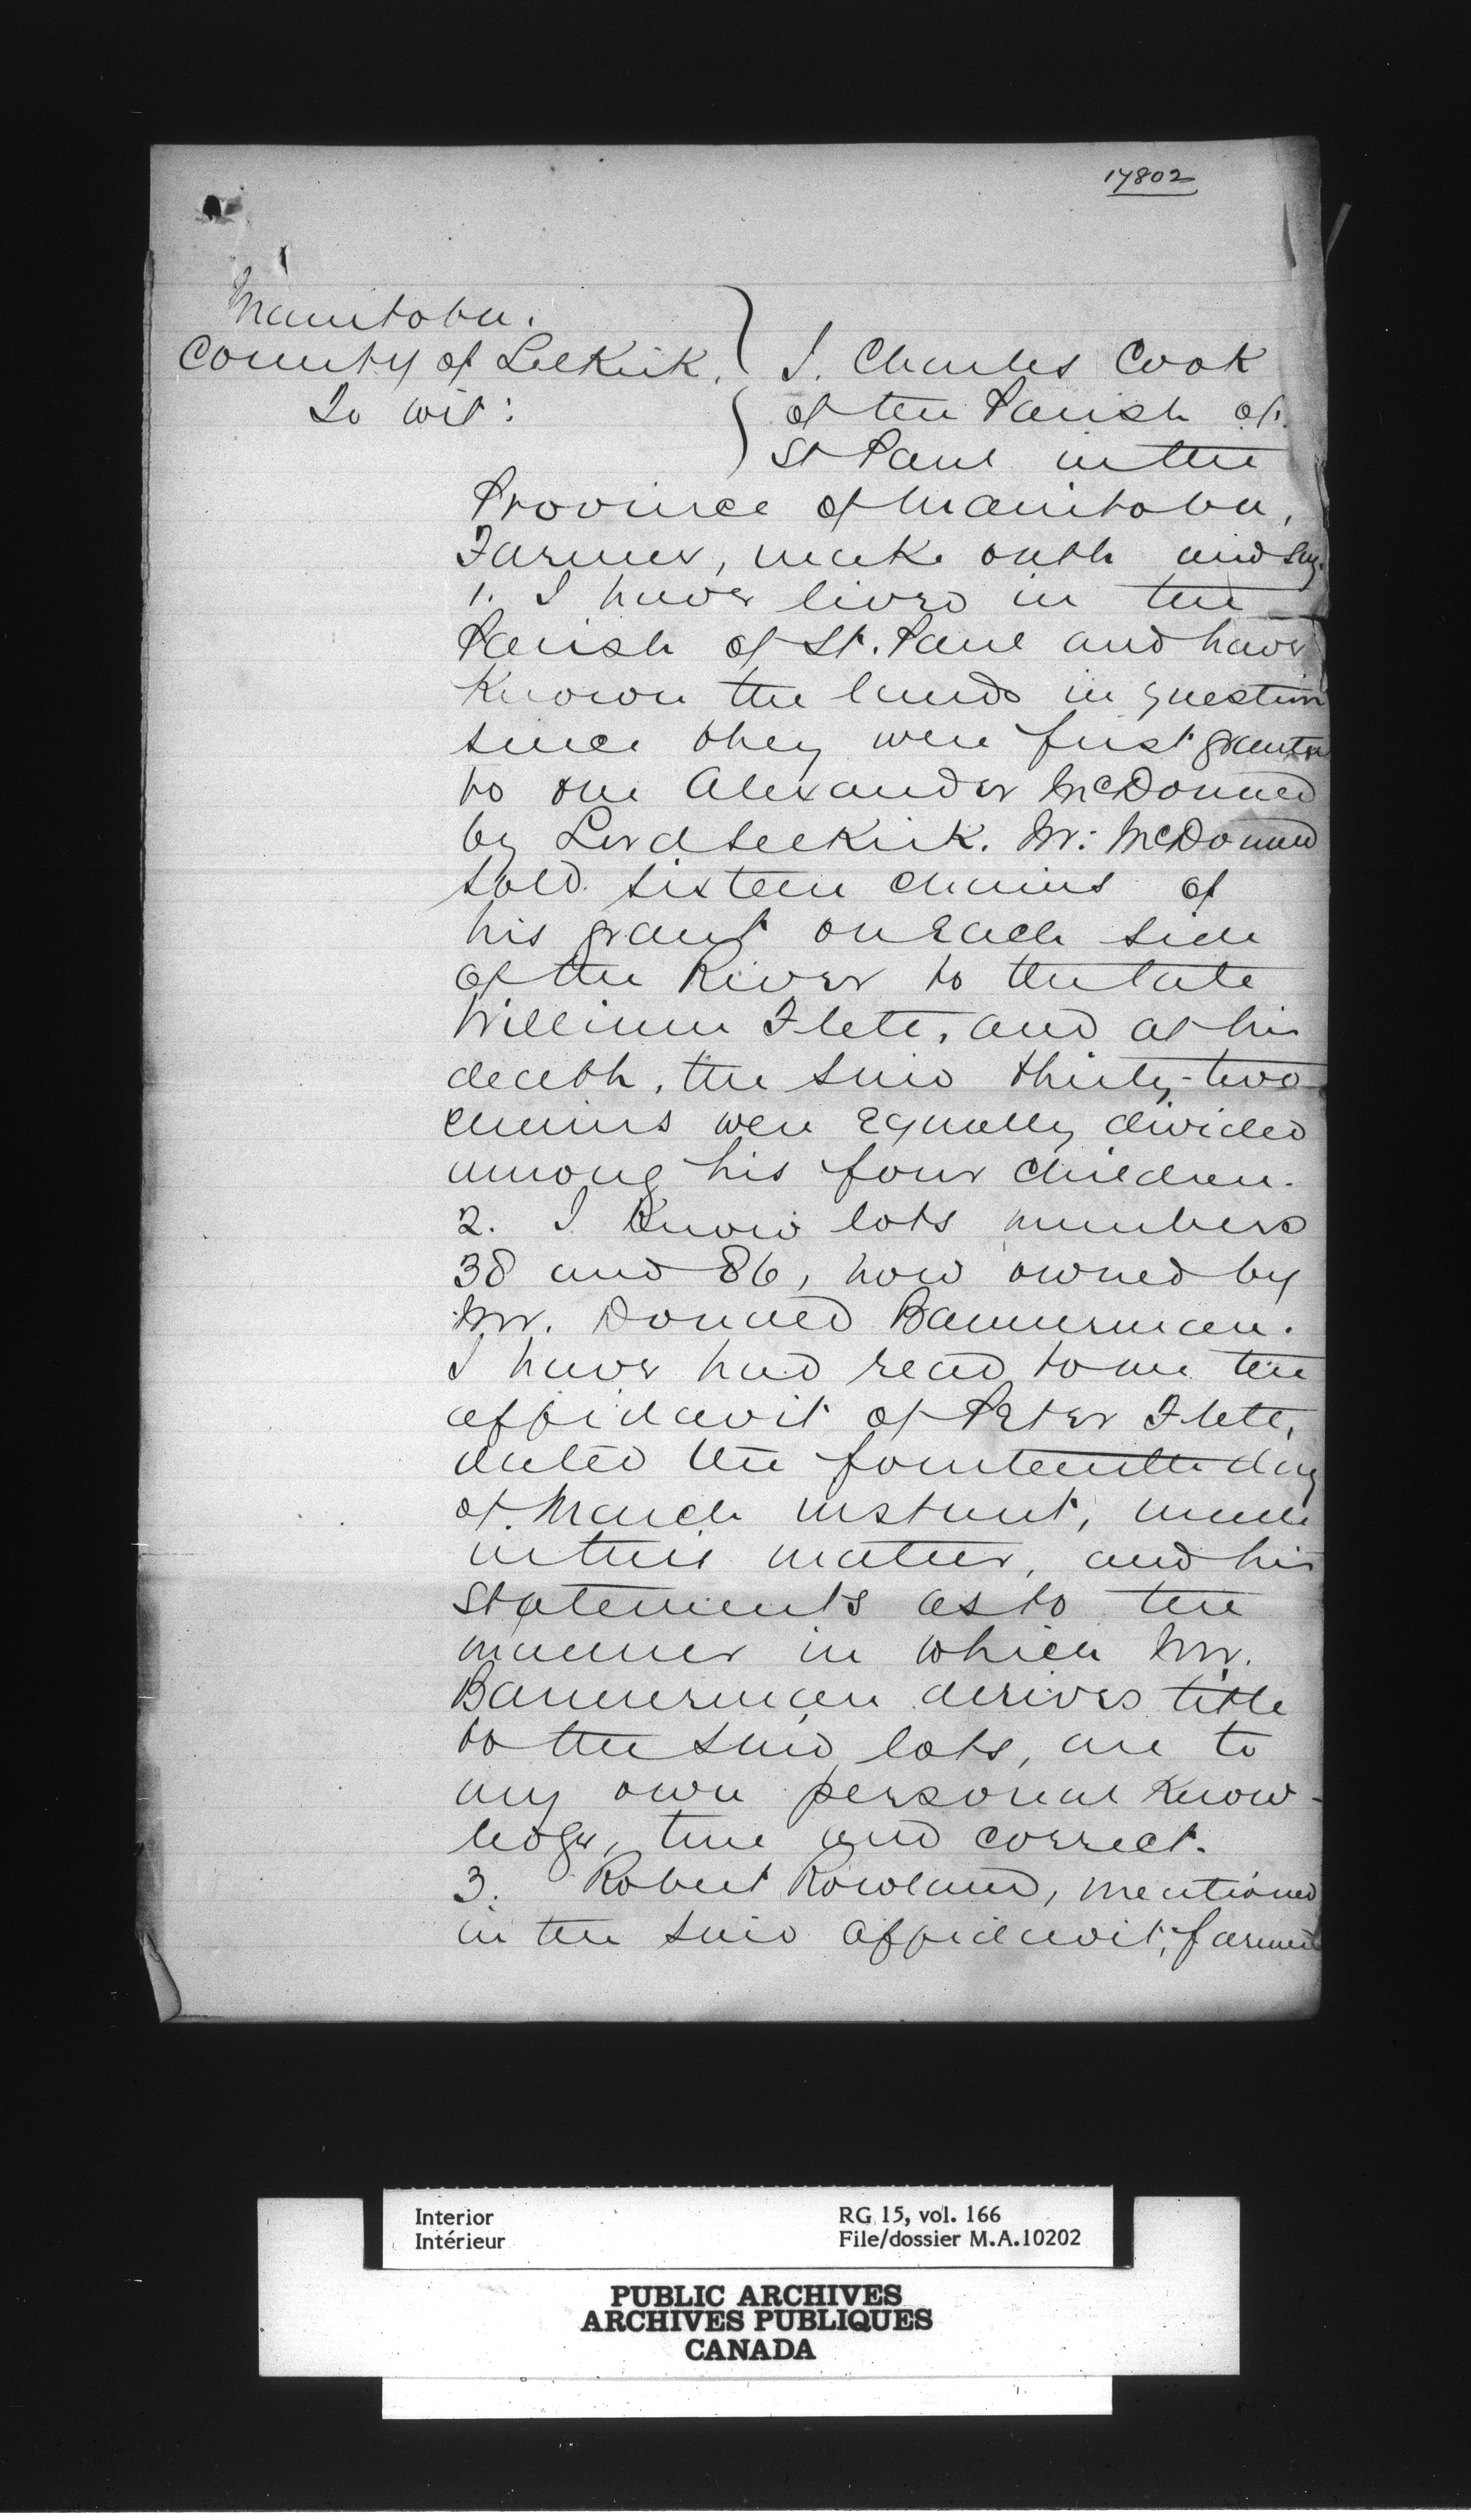 17802
Manitoba.
County of Selkirk.
To wit:
I. Charles Cook
of the Parish of
St Paul in the
Province of Manitoba,
Farmer, make oath and say.
1. I have lived in the
Parish of St. Paul and have
Known the lands in question
since they were first granted
to one Alexander McDonned
by Lord Selkirk. Mr. McDonned
sold sixteen chains of
his grant on Each side
of the River to the late
William Flett, and at his
death, the said thirty-two
chains were Equally divided
among his four children.
2. I Know lots numbers
38 and 86, now owned by
Mr. Donald Bannerman.
I have had read to me the
affidavit of Peter Flett,
dated the fourteenth day
of March instant, made
in this matter, and his
statements as to the
manner in which Mr.
Bannerman derives title
to the said lots, are to
my own personal Know-
ledge, true and correct.
3. Robert Rowland, mentioned
in the said affidavit, farmed
Interior
Intérieur
RG 15, vol. 166
File/dossier M.A.10202
PUBLIC ARCHIVES
ARCHIVES PUBLIQUES
CANADA